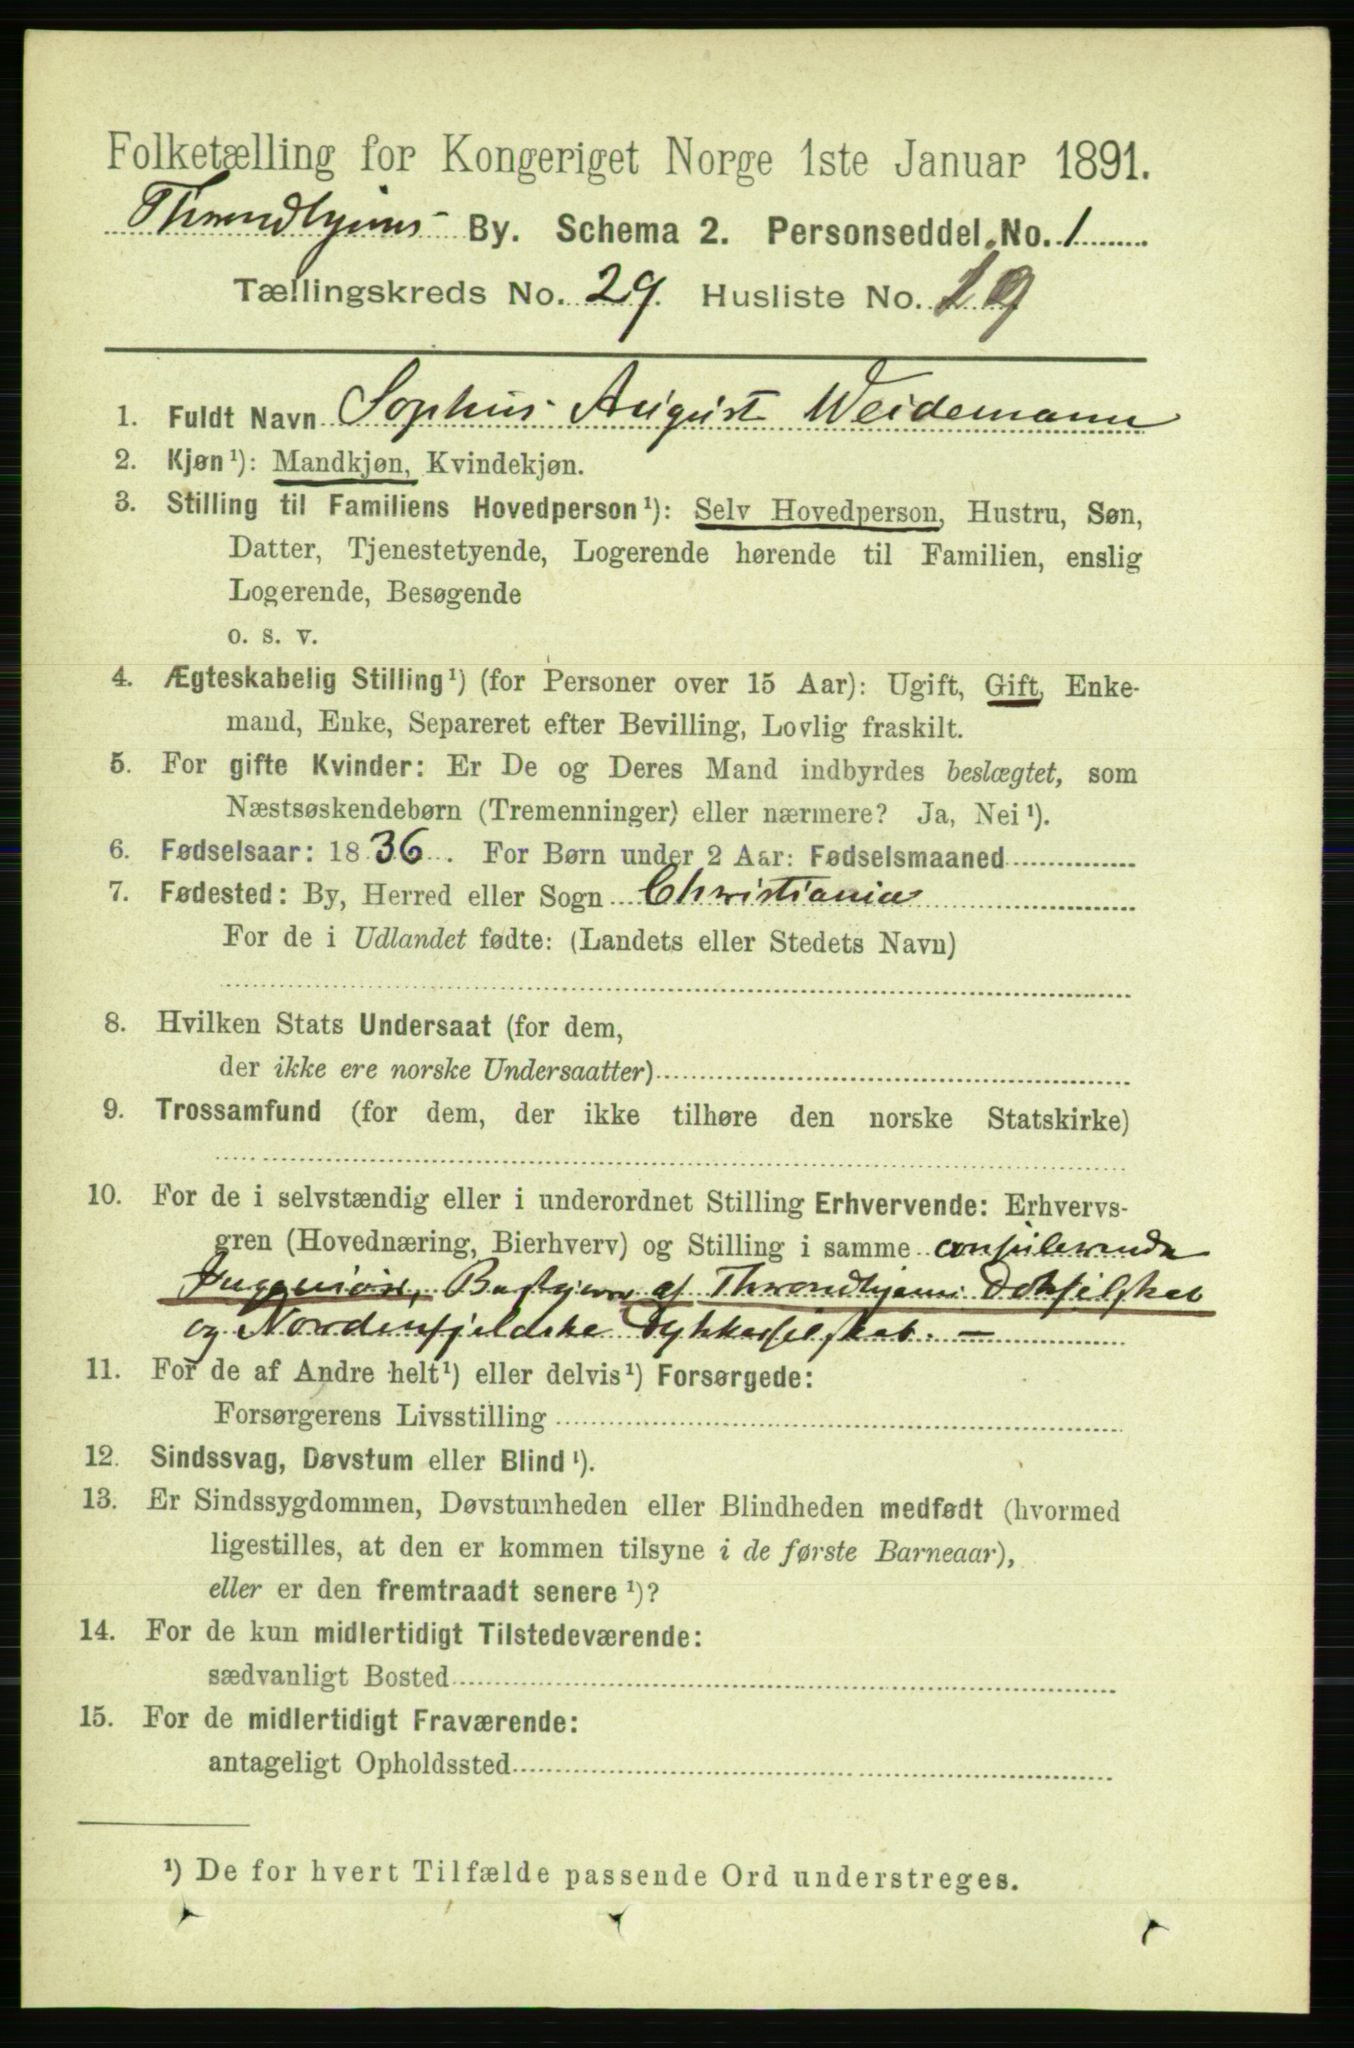 Folketælling for Kongeriget Norge 1ste Januar 1891.
Throndhjems By. Schema 2. Personseddel No. 1
Tællingskreds No. 29. Husliste No. 19
1. Fuldt Navn Sophus August Weidemann
2. Kjøn¹): Mandkjøn, Kvindekjøn.
3. Stilling til Familiens Hovedperson¹): Selv Hovedperson, Hustru, Søn,
Datter, Tjenestetyende, Logerende hørende til Familien, enslig
Logerende, Besøgende
o. s. v.
4. Ægteskabelig Stilling¹) (for Personer over 15 Aar): Ugift, Gift, Enke-
mand, Enke, Separeret efter Bevilling, Lovlig fraskilt.
5. For gifte Kvinder: Er De og Deres Mand indbyrdes beslægtet, som
Næstsøskendebørn (Tremenninger) eller nærmere? Ja, Nei¹).
6. Fødselsaar: 1836. For Børn under 2 Aar: Fødselsmaaned
7. Fødested: By, Herred eller Sogn Christiania
For de i Udlandet fødte: (Landets eller Stedets Navn)
8. Hvilken Stats Undersaat (for dem,
der ikke ere norske Undersaatter)
9. Trossamfund (for dem, der ikke tilhøre den norske Statskirke)
10. For de i selvstændig eller i underordnet Stilling Erhvervende: Erhvervs-
gren (Hovednæring, Bierhverv) og Stilling i samme consulerende
Ingeniør, Bestyrer af Throndhjems Dokselskab
og Nordenfjeldske Dykkerselskab. —
11. For de af Andre helt¹) eller delvis¹) Forsørgede:
Forsørgerens Livsstilling
12. Sindssvag, Døvstum eller Blind¹).
13. Er Sindssygdommen, Døvstumheden eller Blindheden medfødt (hvormed
ligestilles, at den er kommen tilsyne i de første Barneaar),
eller er den fremtraadt senere¹)?
14. For de kun midlertidigt Tilstedeværende:
sædvanligt Bosted
15. For de midlertidigt Fraværende:
antageligt Opholdssted
¹) De for hvert Tilfælde passende Ord understreges.